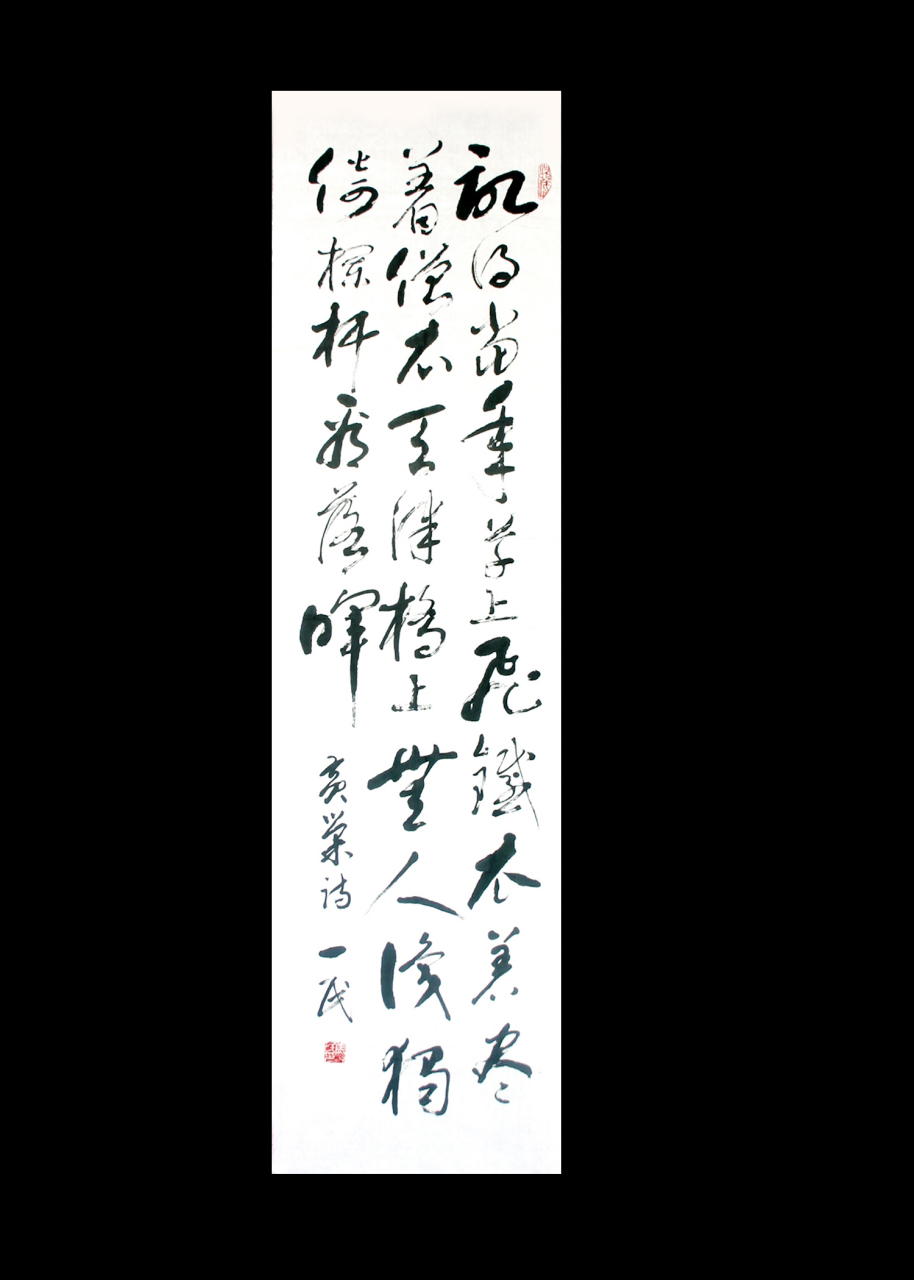 記得當年草上飛鐵衣着尽
着僧衣天津橋上無人識獨
倚欄杆看落暉 黄巢詩